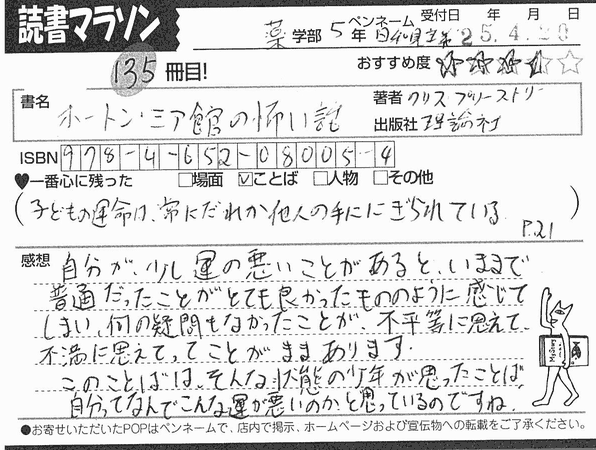 読書マラソン
薬 学部 5 年 ペンネーム 受付日 年 月 日
25.4.20
135 冊目!
おすすめ度 ☆☆☆☆☆
書名 ホートン・ミア館の怖い話
著者 クリス・プリーストリー
出版社 理論社
ISBN 978-4-652-08005-4
♥一番心に残った □場面 ☑ことば □人物 □その他
(子どもの運命は、常にだれか他人の手ににぎられている。 P.21)
感想 自分が、少し運の悪いことがあると、いままで
普通だったことがとても良かったもののように感じて
しまい、何の疑問もなかったことが、不平等に思えて、
不満に思えてってことがままあります.
このことばは、そんな状態の少年が思ったことば
自分ってなんでこんな運が悪いのかと思っているのですね.
●お寄せいただいたPOPはペンネームで、店内で掲示、ホームページおよび宣伝物への転載をご了承ください。